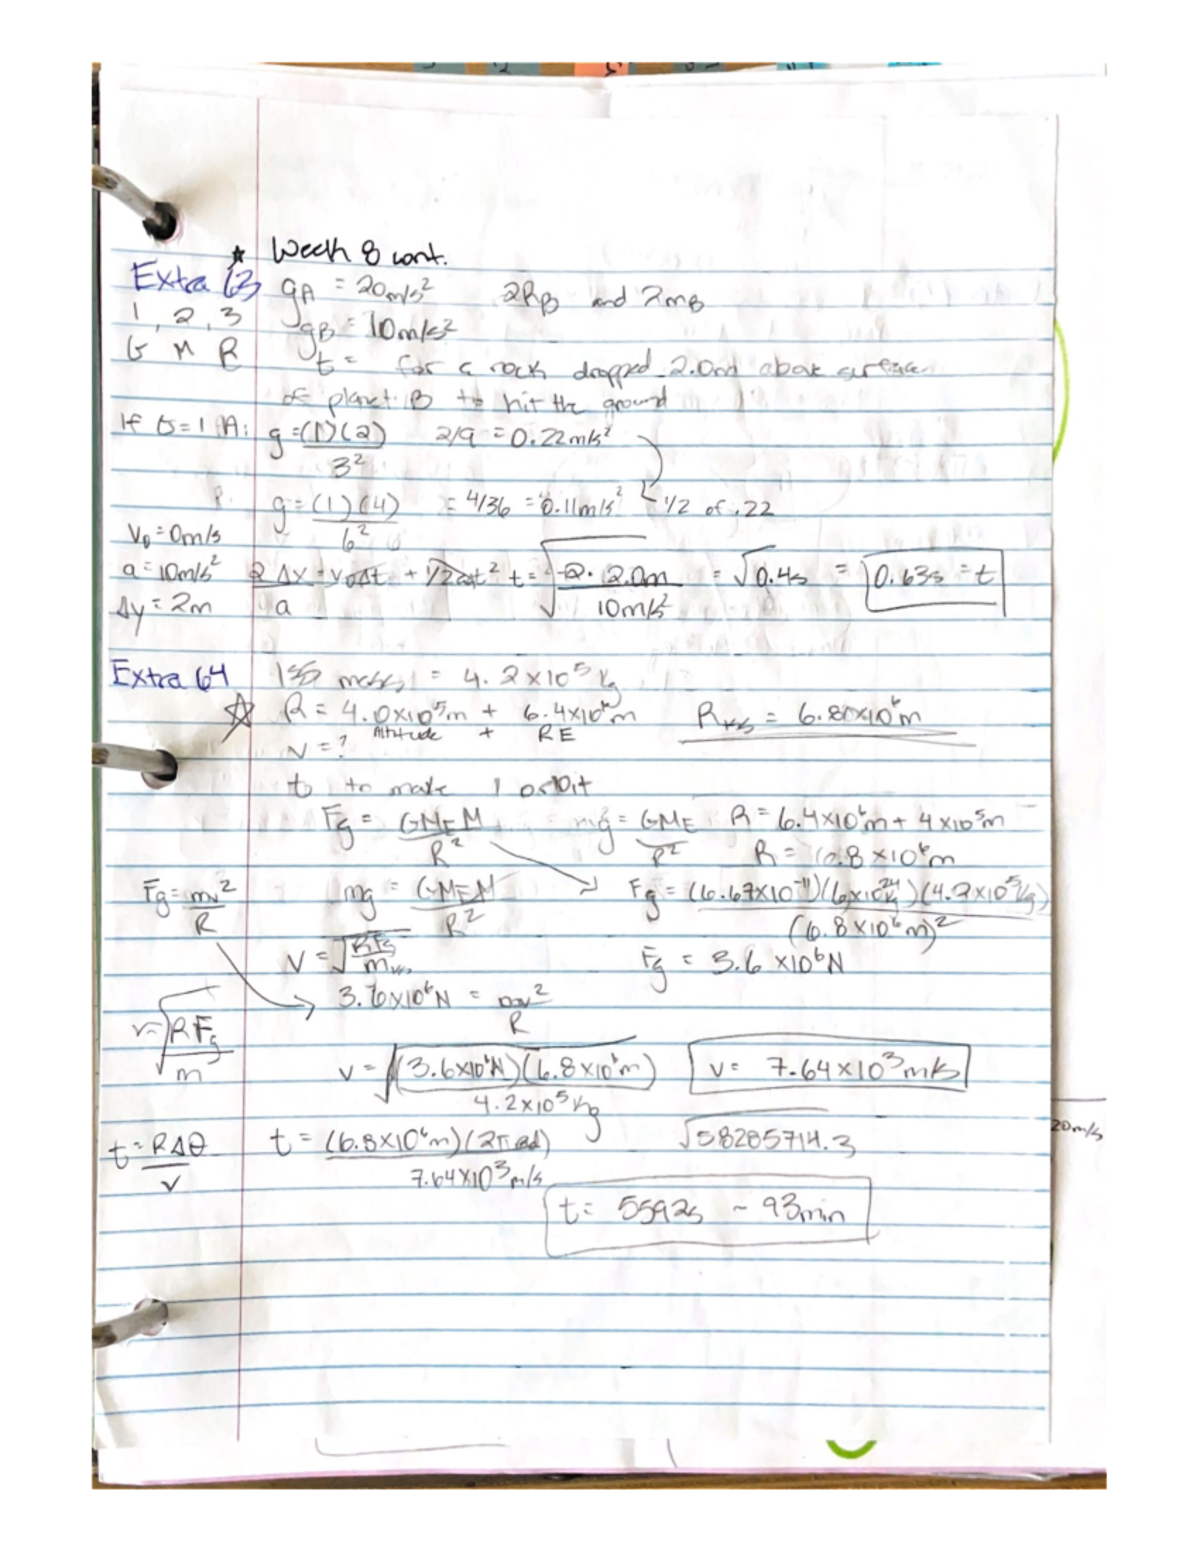 ★ Week 8 cont.
Extra 63 gA = 20m/s² 2RB and 2mB
1, 2, 3 gB = 10m/s²
G M R t = for a rock dropped 2.0m above surface
of planet B to hit the ground
If G=1 A: g = (1)(2) / 3² 2/9 = 0.22m/s²
g = (1)(4) / 6² = 4/36 = 0.11m/s² 1/2 of .22
V₀ = 0m/s
a = 10m/s² 2 Δx / a = v₀Δt + 1/2at² t = √(-2 · 2.0m / 10m/s²) = √0.4s = 0.63s = t
Δy = 2m
Extra 64 ISS mass = 4.2×10⁵ kg
☆ R = 4.0×10⁵m + 6.4×10⁶m = 6.80×10⁶m
Altitude + RE
v = ?
t to make 1 orbit
Fg = GMEM / R² mg = GME / R² R = 6.4×10⁶m + 4×10⁵m
R = 6.8×10⁶m
Fg = mv² / R mg = GMEM / R² Fg = (6.67×10⁻¹¹)(6×10²⁴kg)(4.2×10⁵kg) / (6.8×10⁶m)²
V = √RFg / m Fg = 3.6×10⁶N
3.6×10⁶N = mv² / R
v = √RFg / m
v = √(3.6×10⁶N)(6.8×10⁶m) / 4.2×10⁵kg v = 7.64×10³m/s
20m/s
t = RΔθ / v t = (6.8×10⁶m)(2π rad) / 7.64×10³m/s √58285714.3
t = 5592s ~ 93min